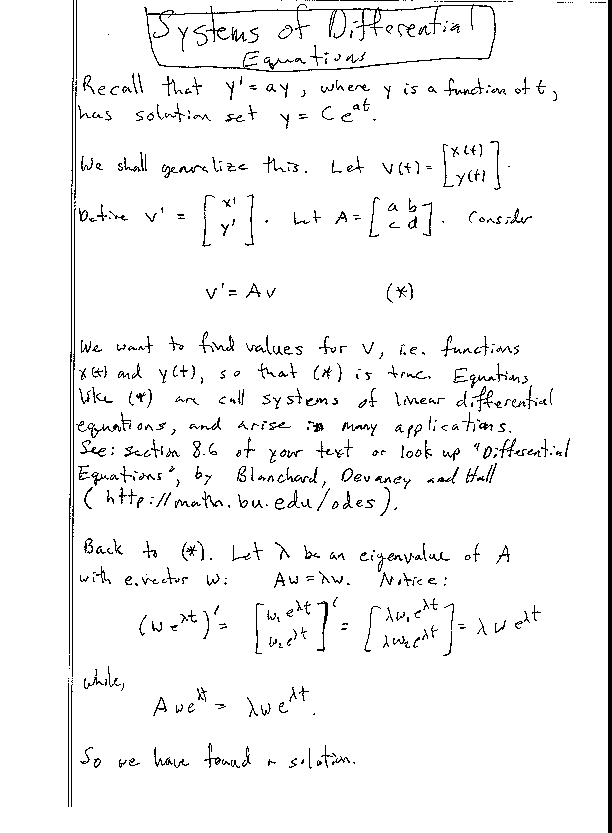 Systems of Differential
Equations
Recall that y' = ay, where y is a function of t,
has solution set y = Ce^{at}.
We shall generalize this. Let v(t) = [x(t) y(t)].
Define v' = [x' y']. Let A = [a b c d]. Consider
v' = Av (*)
We want to find values for v, i.e. functions
x(t) and y(t), so that (*) is true. Equations
like (*) are call systems of linear differential
equations, and arise in many applications.
See: section 8.6 of your text or look up "Differential
Equations", by Blanchard, Devaney and Hall
(http://math.bu.edu/odes).
Back to (*). Let λ be an eigenvalue of A
with e.vector w: Aw = λw. Notice:
(we^{λt})' = [w₁e^{λt} w₂e^{λt}]' = [λw₁e^{λt} λw₂e^{λt}] = λwe^{λt}
while,
Awe^{λt} = λwe^{λt}.
So we have found a solution.